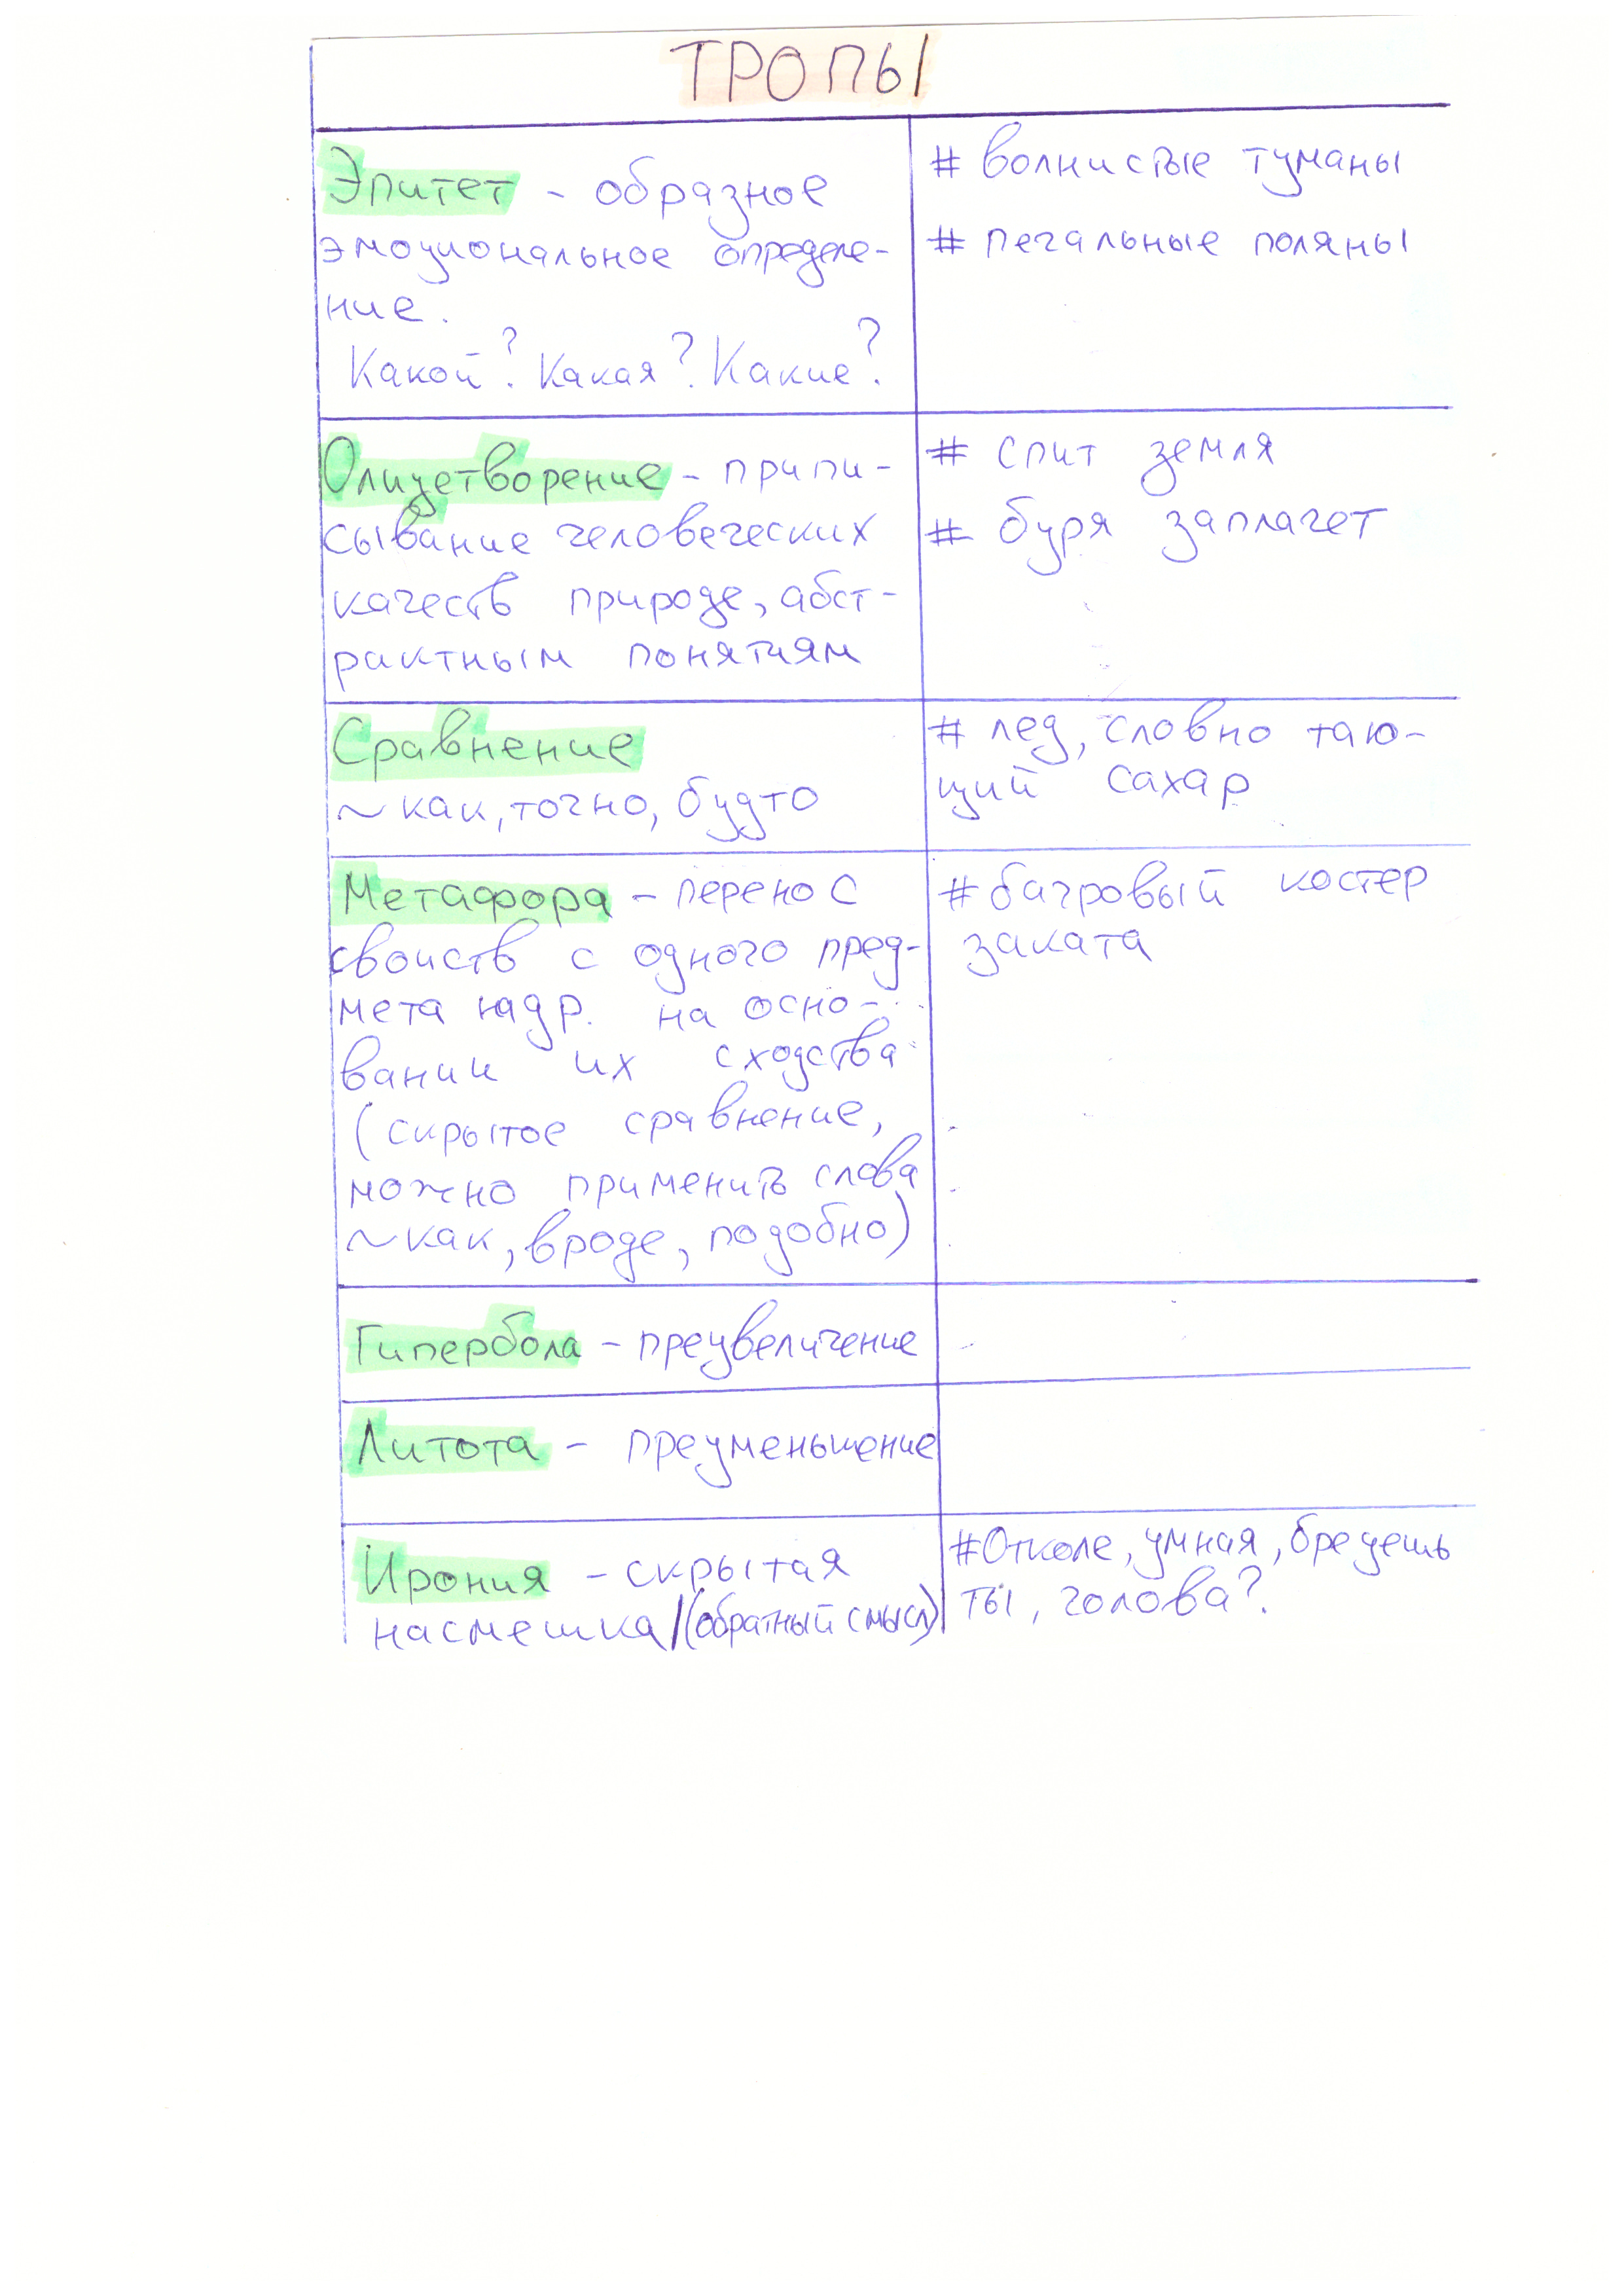 ТРОПЫ
Эпитет - образное
эмоциональное определе-
ние.
Какой? Какая? Какие?
# волнистые туманы
# печальные поляны
Олицетворение - припи-
сывание человеческих
качеств природе, абст-
рактным понятиям
# спит земля
# буря заплачет
Сравнение
~ как, точно, будто
# лед, словно таю-
щий сахар
Метафора - перенос
свойств с одного пред-
мета на др. на осно-
вании их сходства
(скрытое сравнение,
можно применить слова
~ как, вроде, подобно)
# багровый костер
заката
Гипербола - преувеличение
Литота - преуменьшение
Ирония - скрытая
насмешка/(обратный смысл)
# Отколе, умная, бредешь
ты, голова?